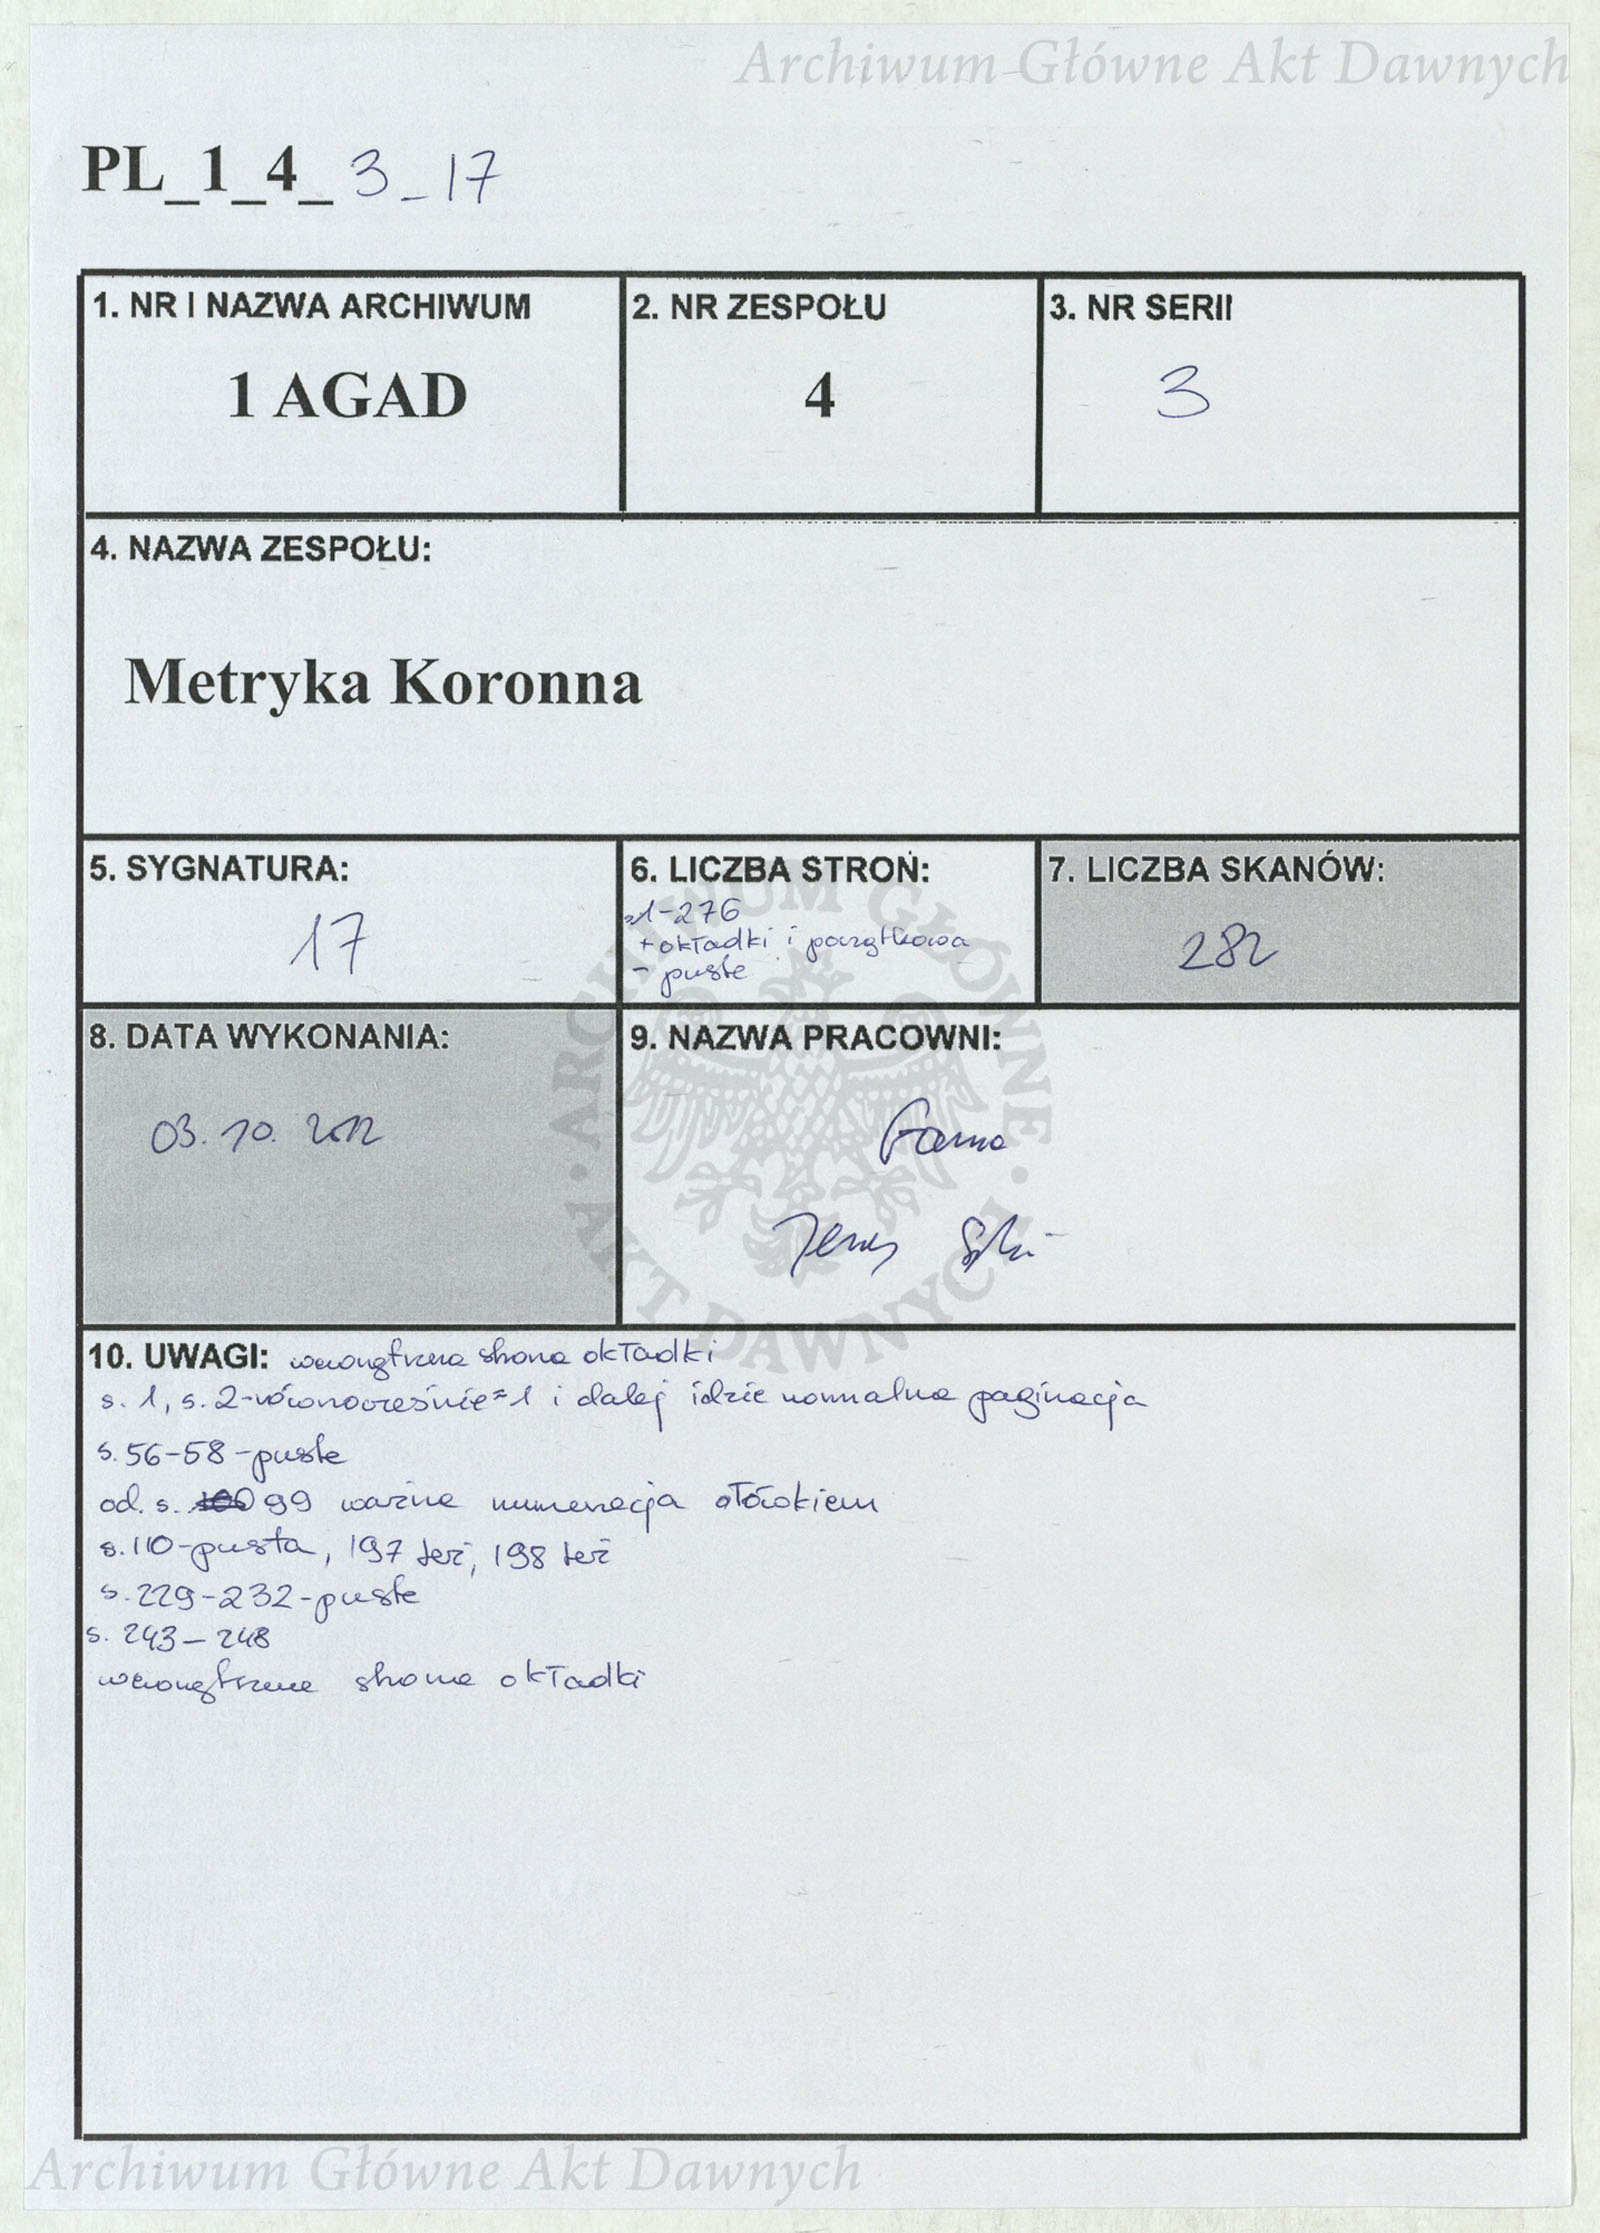 Archiwum Główne Akt Dawnych
PL_1_4_ 3_17
1. NR I NAZWA ARCHIWUM
1 AGAD
2. NR ZESPOŁU
4
3. NR SERII
3
4. NAZWA ZESPOŁU:
Metryka Koronna
5. SYGNATURA:
17
6. LICZBA STRON:
1-276
+ okładki i początkowa
- puste
7. LICZBA SKANÓW:
282
8. DATA WYKONANIA:
03.10.2012
9. NAZWA PRACOWNI:
ARCHIWUM GŁÓWNE AKT DAWNYCH
10. UWAGI: wewnętrzna strona okładki
s. 1, s. 2-równocześnie=1 i dalej idzie normalna paginacja
s. 56-58-puste
od. s. 99 ważna numeracja ołówkiem
s. 110-pusta, 197 też, 198 też
s. 229-232-puste
s. 243-248
wewnętrzna strona okładki
Archiwum Główne Akt Dawnych